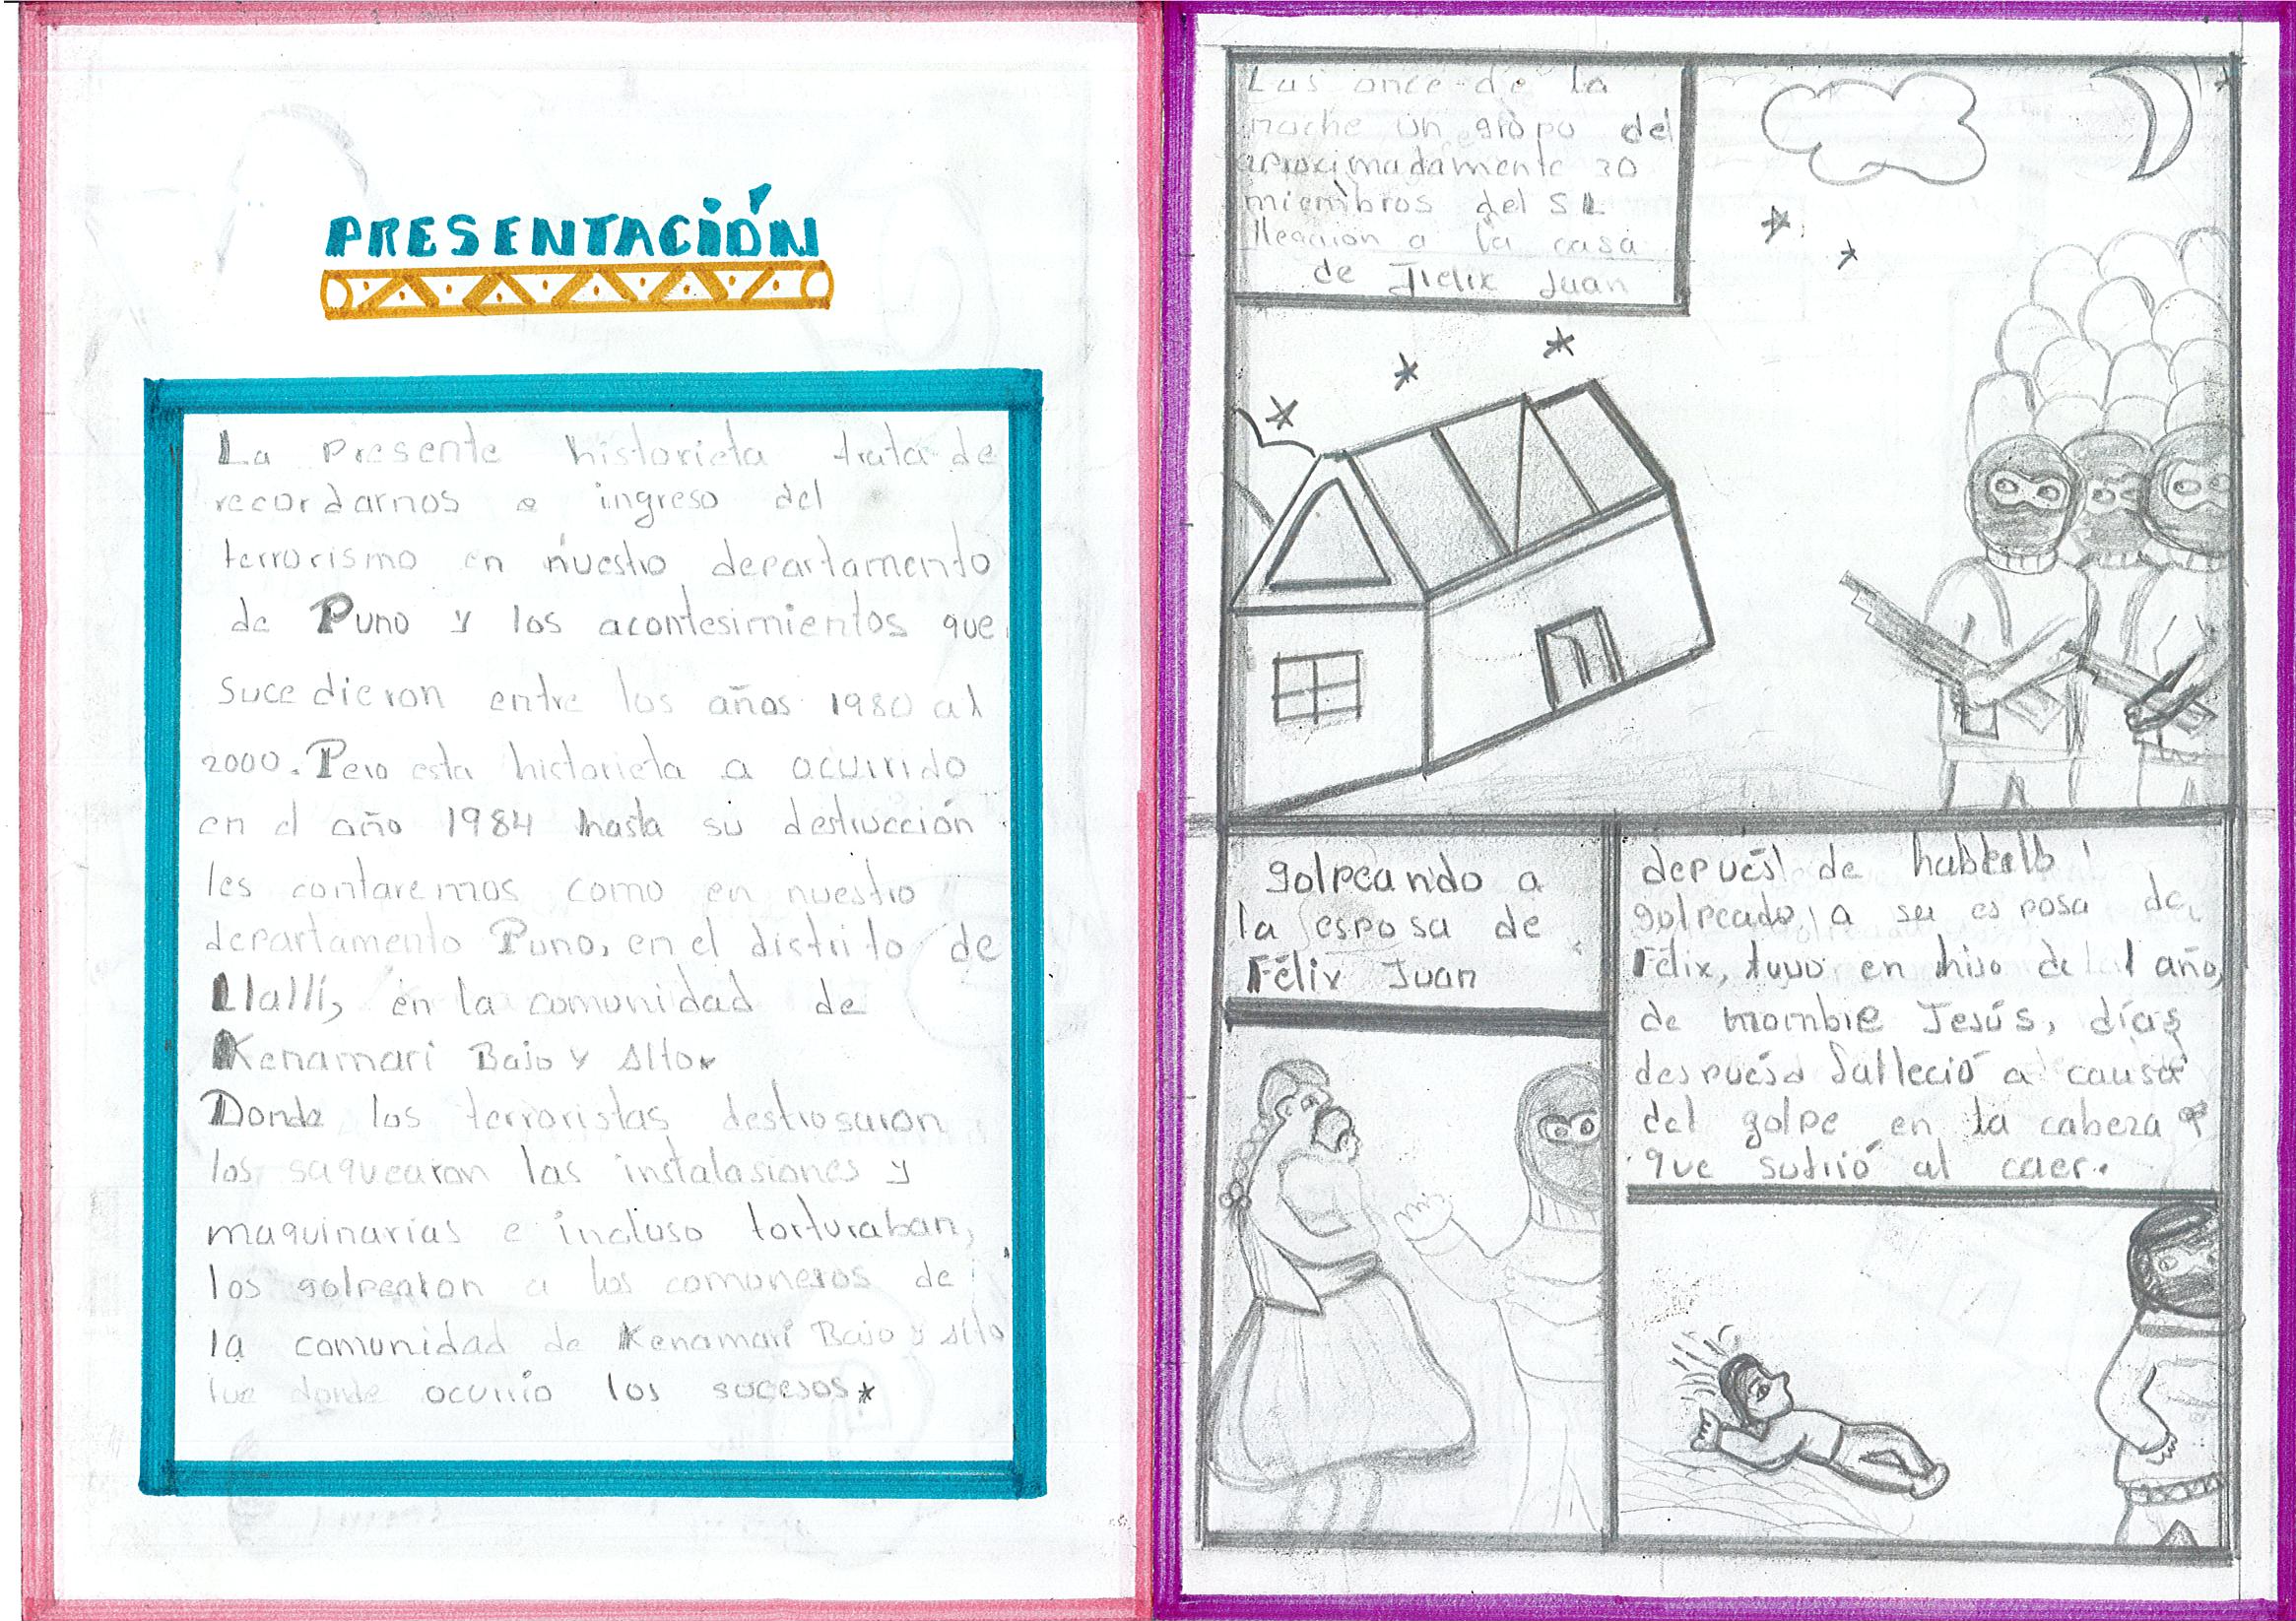 PRESENTACIÓN
La presente historieta trata de
recordarnos e ingreso del
terrorismo en nuestro departamento
de Puno y los acontesimientos que
sucedieron entre los años 1980 al
2000. Pero esta historieta a ocurrido
en el año 1984 hasta su destrucción
les contaremos como en nuestro
departamento Puno, en el distrito de
Llallí, en la comunidad de
Kenamari Bajo y Alto.
Donde los terroristas destrosaron
los saquearon las instalasiones y
maquinarías e incluso torturaban,
los golpearon a los comuneros de
la comunidad de Kenamarí Bajo y Alto
fue donde ocurrio los sucesos*
Las once de la
noche un grupo del
aproximadamente 30
miembros del SL
llegaron a la casa
de Felix Juan
golpeando a
la esposa de
Félix Juan
depués de
golpeado, a su esposa de
Félix, tuvo en hijo de 1 año,
de nombre Jesús, días
después falleció a causa
del golpe en la cabeza
que sufrió al caer.